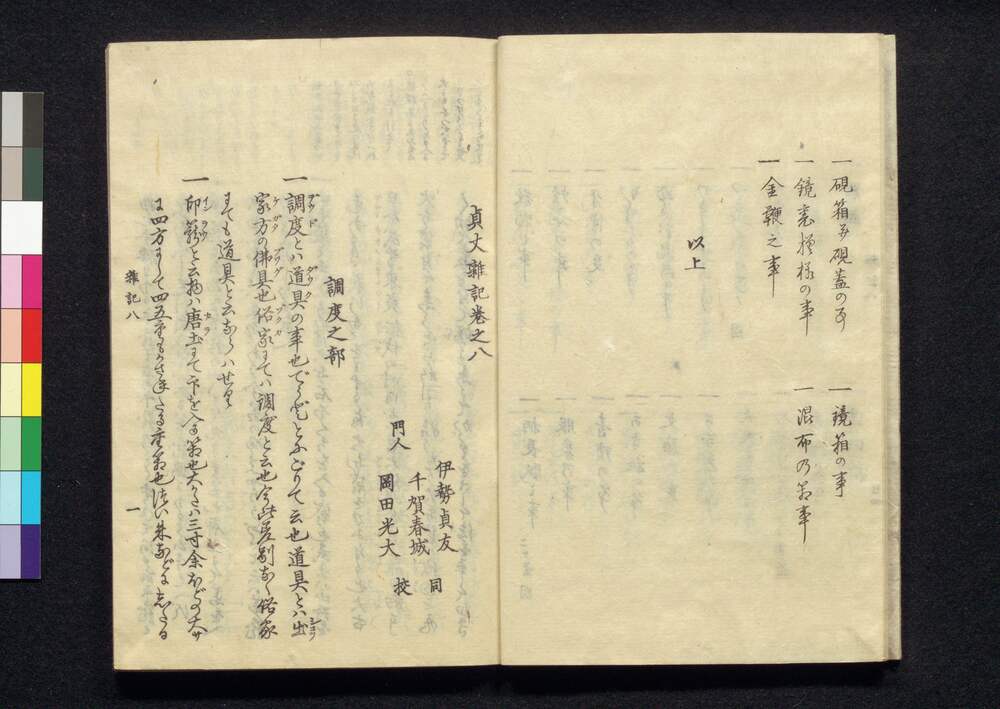 一硯箱并硯蓋の事
一鏡箱の事
一鏡裏模様の事
一混布乃箱事
一金鞭之事
以上
貞丈雜記巻之八
伊勢貞友
千賀春城 同
門人 岡田光大 校
調度之部
一調度とハ道具の事也てうどとふにごりて云也道具とハ出
家方の佛具也俗家にてハ調度と云也今此差別なく俗家
にても道具と云ならハせり
一印籠と云物ハ唐土にて印を入る箱也大さハ三寸余ほどの大サ
に四方にして四五重もかさねたる重箱也
雜記八
一